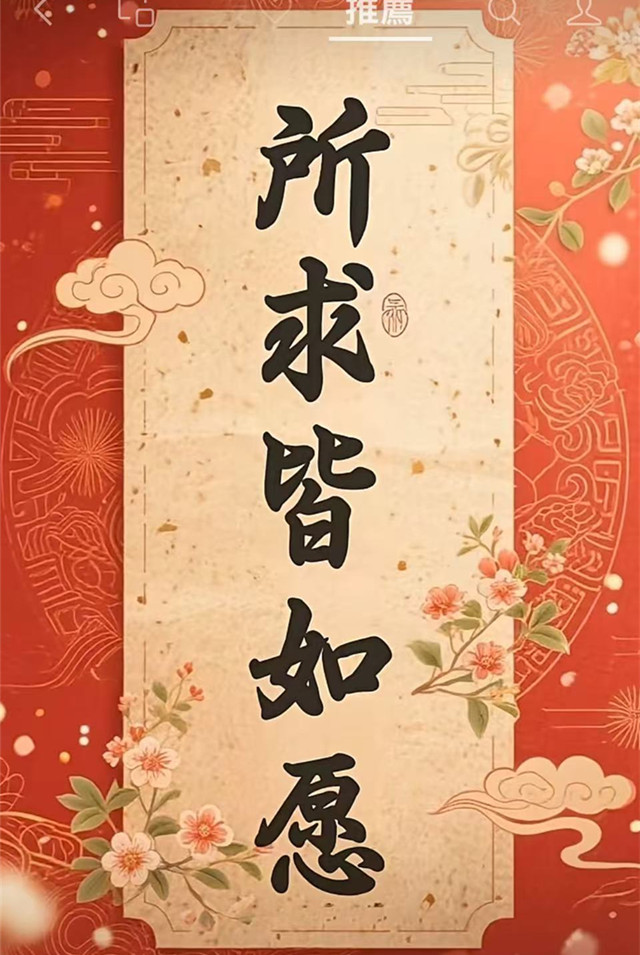 推薦
所求皆如愿